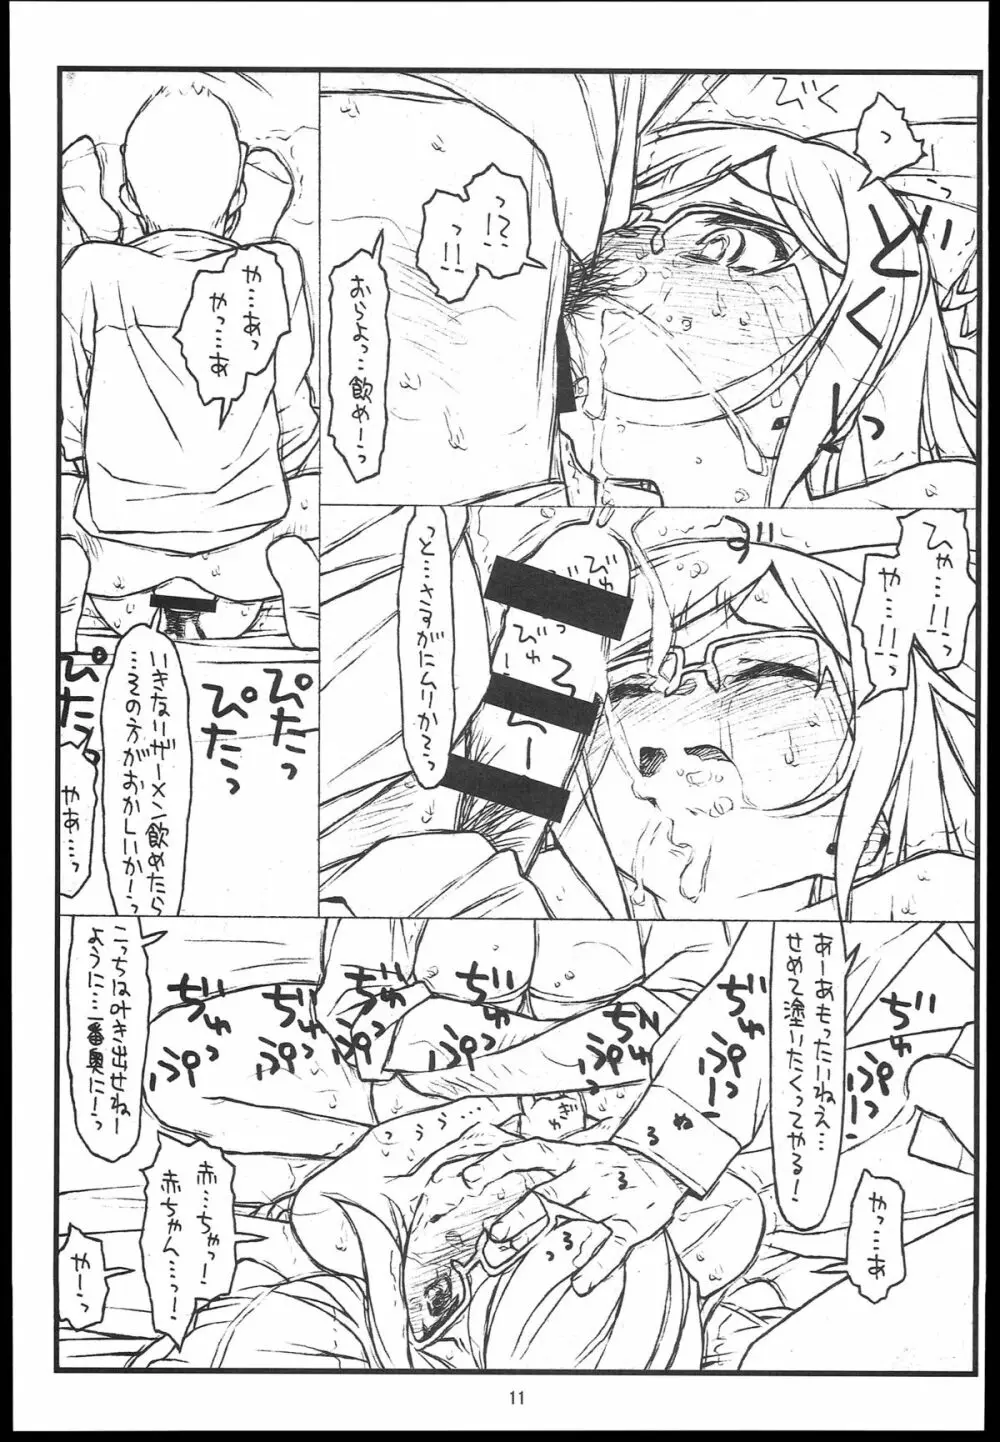 びく
っ
とくとくっ
っ!?
っ!!
おらよっ…飲め!っ
や…あっ
やっ……あ
ひゃ…!!
や…!!
っと……さすがにムリか?っ
びゅ
びゅ
びゅーっ
いきなりザーメン飲めたら
……その方がおかしいか!っ
ぴたっ
ぴたっ
ぴたっ
やあ……っ
あーあもったいねえ…
せめて塗いたくってやる!
こっちは吐き出せねー
ように…一番奥に!っ
ぢゅぷーっ
ぢゅぷーっ
ぢゅぷっ
ぢゅぷっ
ぢゅぷっ
ぎゅ
ぬる
る
っる
っぅぅ……
赤…ちゃっ!
赤ちゃん……っ!
やーっ
やっ……あ
11